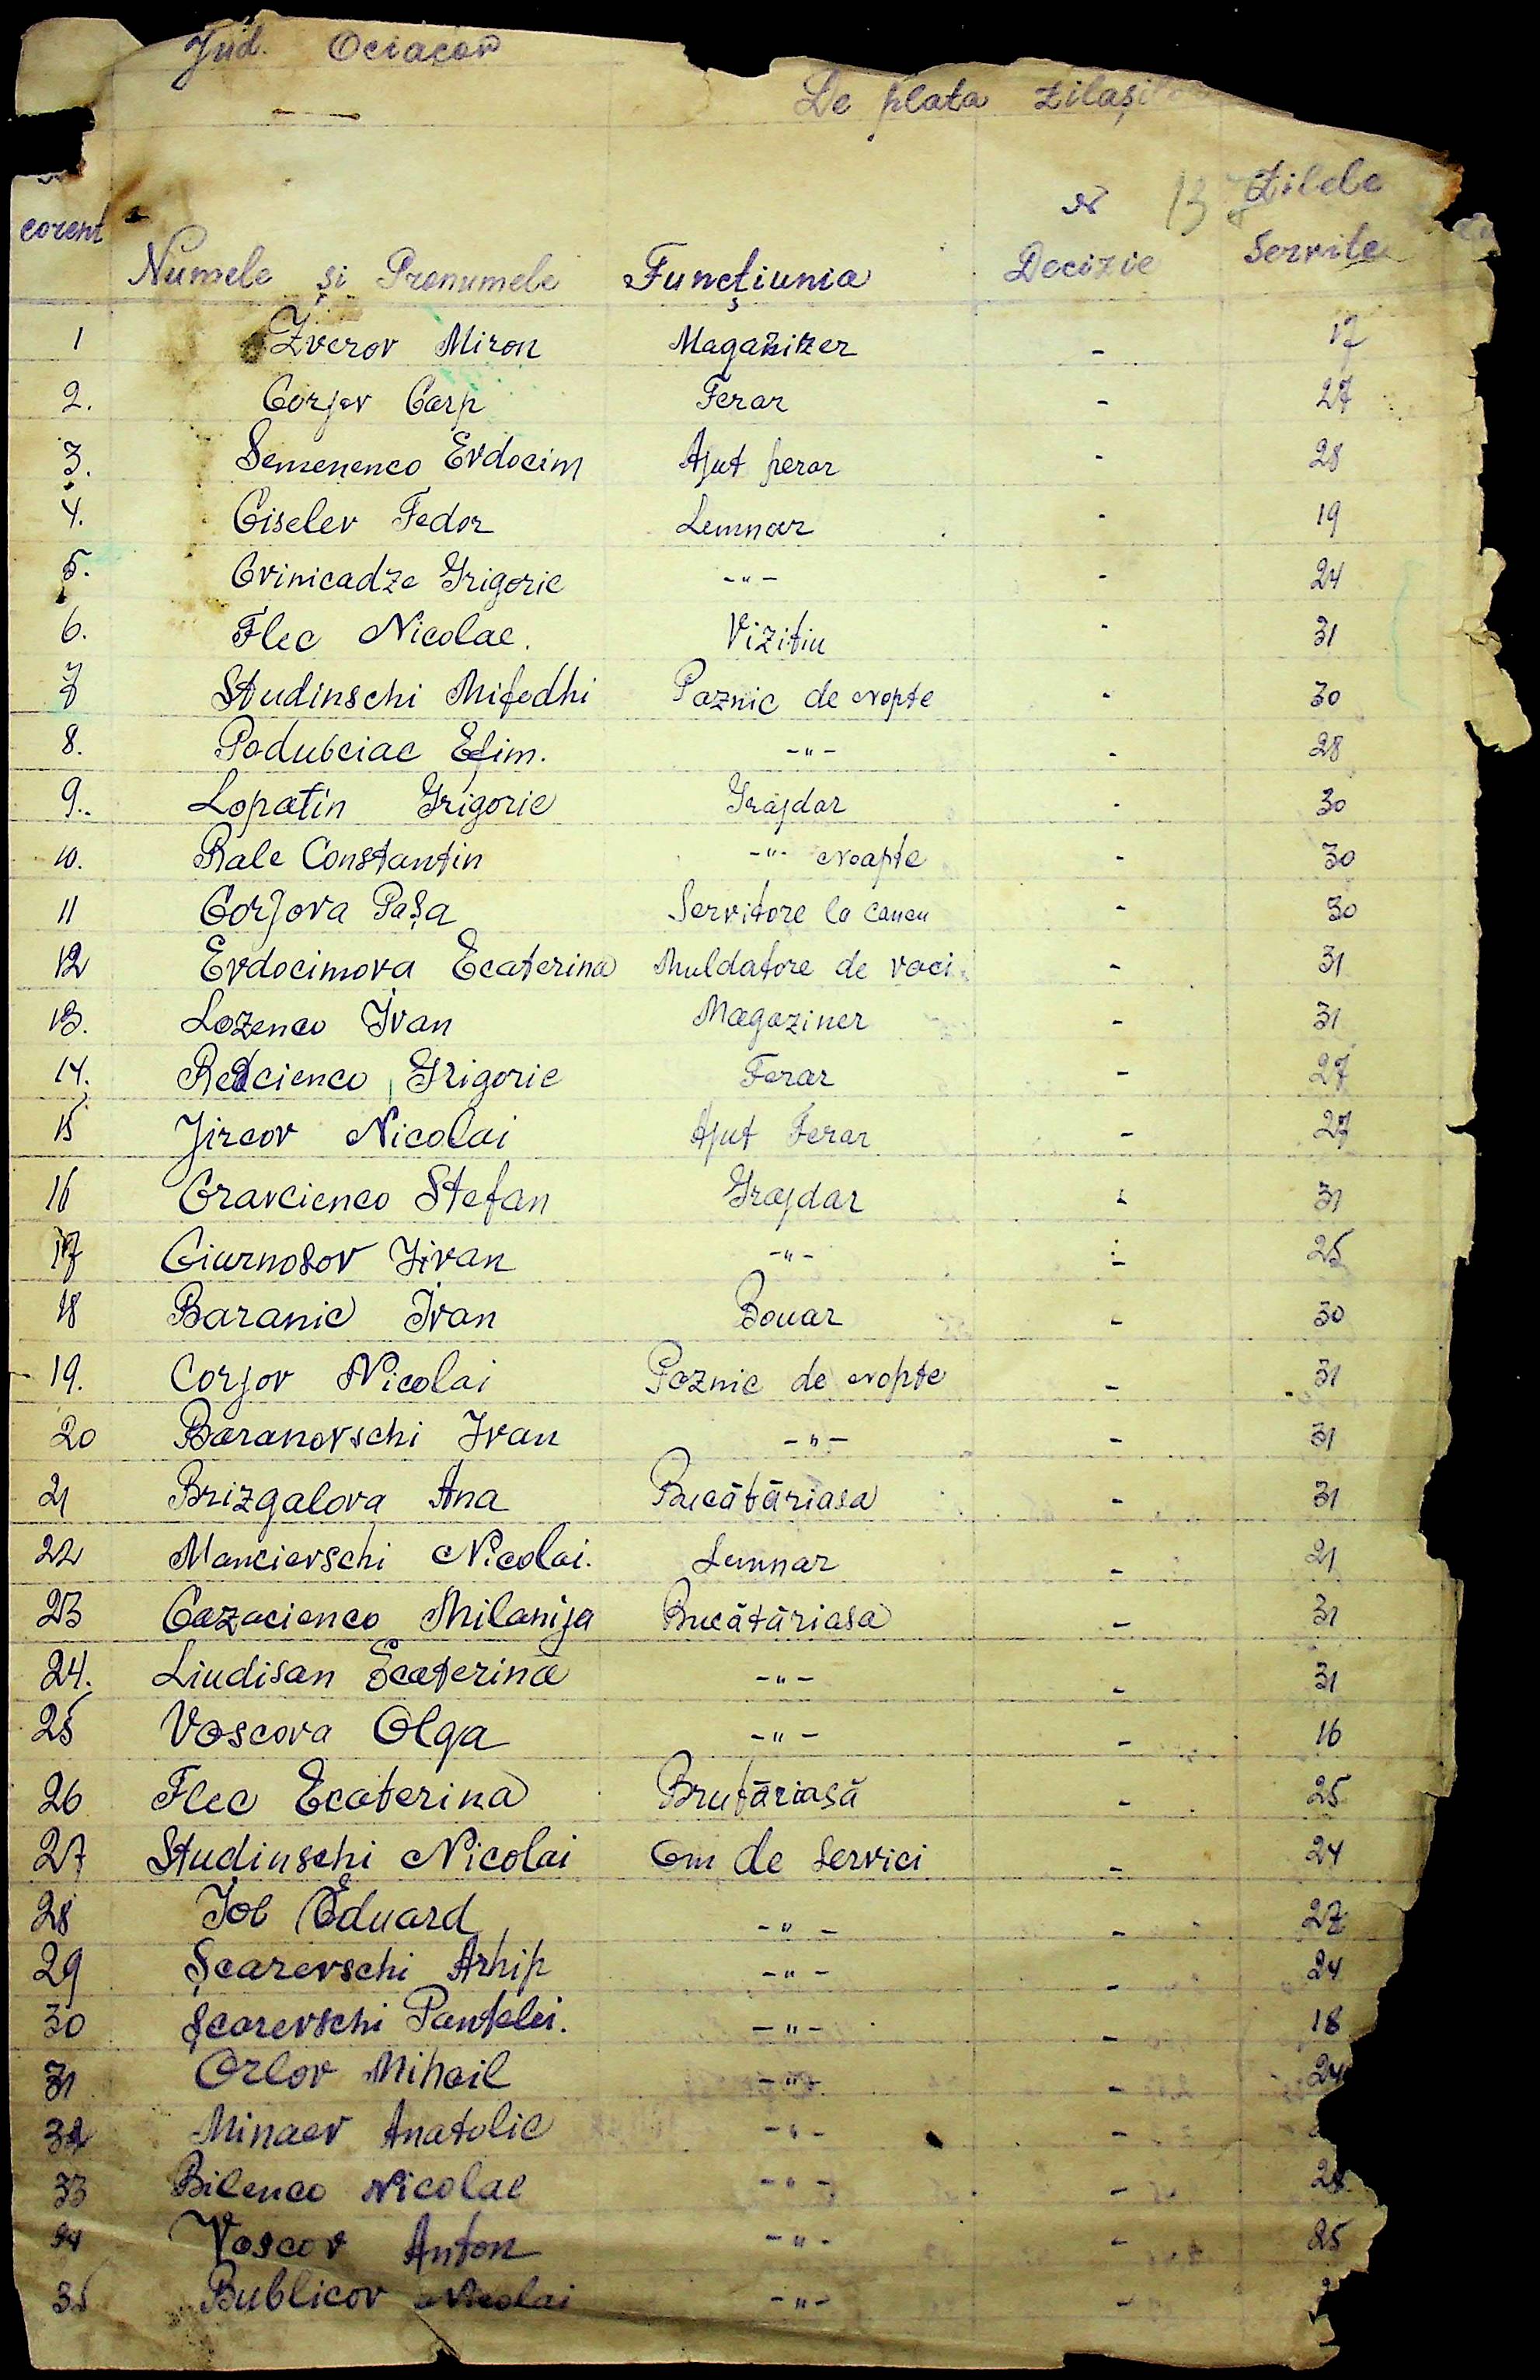 Jud. Ociacov
De plata zilași
corent Numele și Prenumele Funcțiunia Nr Decizie 13 Zilele Servite
1 Zverov Miron Magaziner - 17
2. Corjov Carp Ferar - 27
3. Semenenco Evdocim Ajut ferar - 28
4. Ciselev Fedor Lemnar - 19
5. Cvinicadze Grigorie -"- - 24
6. Flec Nicolae. Vizitiu - 31
7 Studinschi Mifodhi Paznic de nopte - 30
8. Podubciac Efim. -"- - 28
9. Lopatin Grigorie Grajdar - 30
10. Rale Constantin -"- noapte - 30
11 Corjova Pașa Servitore la 30
12 Evdocimova Ecaterina Muldatore de vaci. - 31
13. Lozenco Ivan Magaziner - 31
14. Redcienco Grigorie Ferar - 27
15 Jircov Nicolai Ajut Ferar - 27
16 Cravcienco Stefan Grajdar - 31
17 Ciurnosov Iivan -"- - 25
18 Baranic Ivan Bouar - 30
19. Corjov Nicolai Paznic de nopte - 31
20 Baranovschi Ivan -"- - 31
21 Brizgalova Ana Bucătăriasa - 31
22 Mancievschi Nicolai. Lemnar - 21
23 Cazacienco Milanija Bucătăriasa - 31
24. Liudisan Ecaterina -"- - 31
25 Voscova Olga -"- - 16
26 Flec Ecaterina Brutăriasă - 25
27 Studinschi Nicolai Om de Servici - 24
28 Iob Eduard -"- - 27
29 Șcarevschi Arhip -"- - 24
30 Șcarevschi Pantelei. -"- - 18
31 Orlov Mihail -"- - 24
32 Minaev Anatolie -"- -
33 Bilenco Nicolae -"- - 28
34 Voscov Anton -"- - 25
35 Bublicov Nicolai -"- -